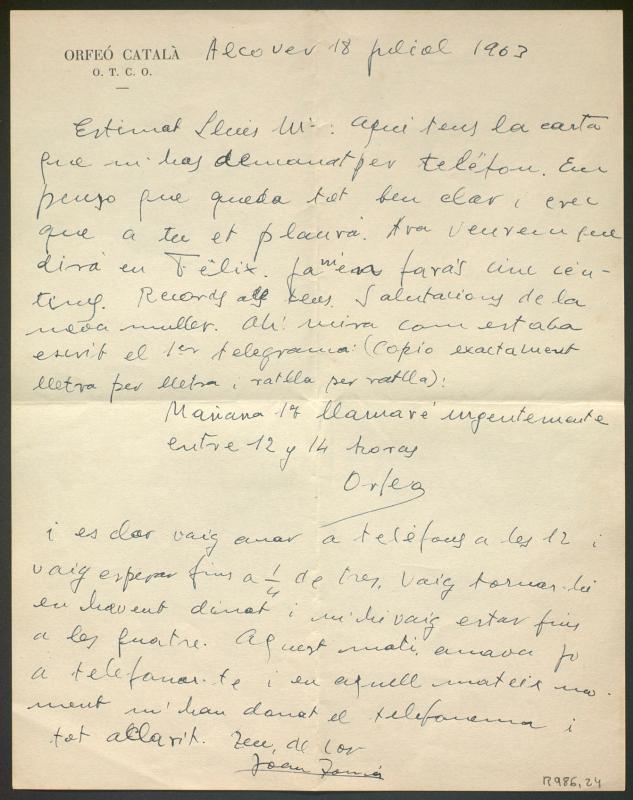 ORFEÓ CATALÀ
O. T. C. O.
Alcover 18 juliol 1963
Estimat Lluis Mª: aqui tens la carta
que m'has demanat per telèfon. Em
penso que queda tot ben clar i crec
que a tu et plaurà. Ara veurem que
dirà en Fèlix. Ja m'en faràs cinc cèn-
tims. Records als teus. Salutacions de la
meva muller. Ah! mira com estaba
escrit el 1er telegrama: (Copio exactament
lletra per lletra i ratlla per ratlla):
Mañana 18 llamaré urgentemente
entre 12 y 14 horas
Orfeo
i es clar vaig anar a telèfons a les 12 i
vaig esperar fins a 1/4 de tres, vaig tornar-hi
en havent dinat i m'hi vaig estar fins
a les quatre. Aquest matí anava jo
a telefonar-te i en aquell mateix mo-
ment m'han donat el telefonema i
tot aclarit. Teu, de cor
Joan Tomàs
R986,24